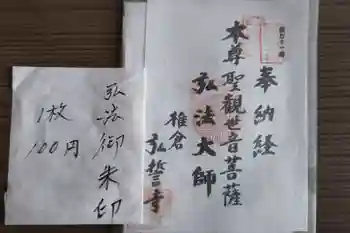 奉納経
本尊聖觀世音菩薩
弘法大師
椎倉
弘誓寺
弘法御朱印
1枚
100円